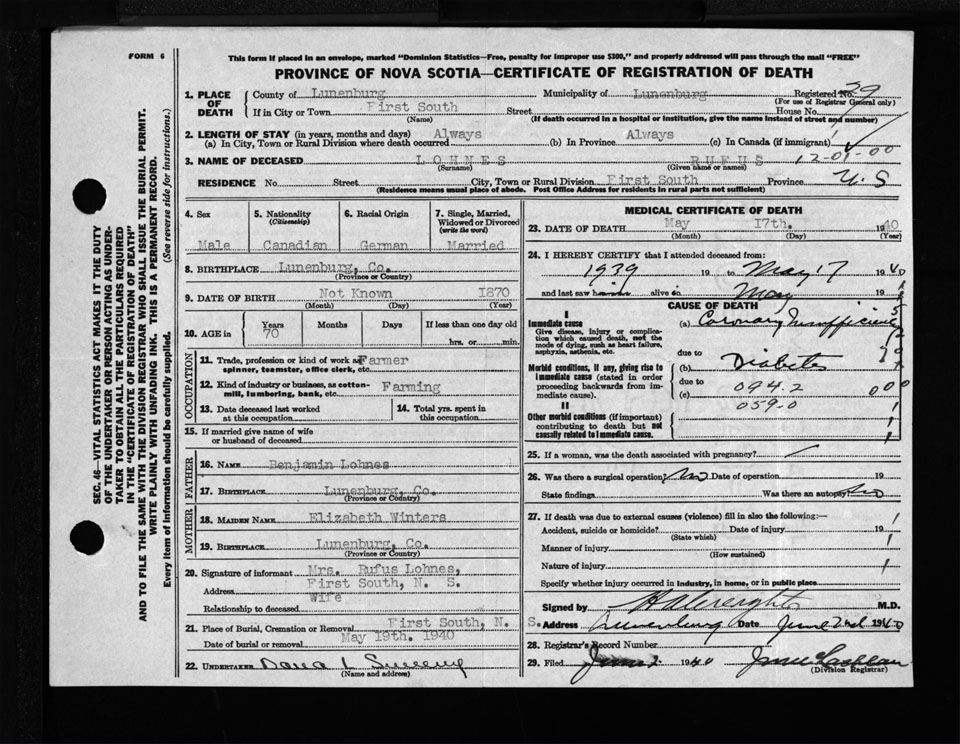 FORM 6
This form if placed in an envelope, marked "Dominion Statistics—Free, penalty for improper use $300," and properly addressed will pass through the mail "FREE"
PROVINCE OF NOVA SCOTIA—CERTIFICATE OF REGISTRATION OF DEATH
SEC. 46—VITAL STATISTICS ACT MAKES IT THE DUTY
OF THE UNDERTAKER OR PERSON ACTING AS UNDER-
TAKER TO OBTAIN ALL THE PARTICULARS REQUIRED
IN THE "CERTIFICATE OF REGISTRATION OF DEATH"
AND TO FILE THE SAME WITH THE DIVISION REGISTRAR WHO SHALL ISSUE THE BURIAL PERMIT.
WRITE PLAINLY WITH UNFADING INK. THIS IS A PERMANENT RECORD.
Every item of information should be carefully supplied. (See reverse side for instructions.)
1. PLACE OF DEATH County of Lunenburg Municipality of Lunenburg Registered No. 39
(For use of Registrar General only)
If in City or Town First South Street House No.
(Name) (If death occurred in a hospital or institution, give the name instead of street and number)
2. LENGTH OF STAY (in years, months and days)
(a) In City, Town or Rural Division where death occurred Always (b) In Province Always (c) In Canada (if immigrant)
3. NAME OF DECEASED LOHNES RUFUS 12-01-00
(Surname) (Given name or names)
RESIDENCE No. Street City, Town or Rural Division First South Province N. S
(Residence means usual place of abode. Post Office Address for residents in rural parts not sufficient)
4. Sex 5. Nationality (Citizenship) 6. Racial Origin 7. Single, Married, Widowed or Divorced (write the word)
Male Canadian German Married
8. BIRTHPLACE Lunenburg, Co.
(Province or Country)
9. DATE OF BIRTH Not Known 1870
(Month) (Day) (Year)
10. AGE in Years Months Days If less than one day old
70 hrs. or min.
OCCUPATION
11. Trade, profession or kind of work as spinner, teamster, office clerk, etc. Farmer
12. Kind of industry or business, as cotton-mill, lumbering, bank, etc. Farming
13. Date deceased last worked at this occupation
14. Total yrs. spent in this occupation
15. If married give name of wife or husband of deceased
FATHER
16. NAME Benjamin Lohnes
17. BIRTHPLACE Lunenburg, Co.
(Province or Country)
MOTHER
18. MAIDEN NAME Elizabeth Winters
19. BIRTHPLACE Lunenburg, Co.
(Province or Country)
20. Signature of informant Mrs. Rufus Lohnes,
Address First South, N. S.
Relationship to deceased Wife
21. Place of Burial, Cremation or Removal First South, N. S.
Date of burial or removal May 19th. 1940
22. UNDERTAKER
(Name and address)
MEDICAL CERTIFICATE OF DEATH
23. DATE OF DEATH May 17th. 1940
(Month) (Day) (Year)
24. I HEREBY CERTIFY that I attended deceased from:
1939 19 to May 17 1940
and last saw h alive on May 19
CAUSE OF DEATH
I
Immediate cause
Give disease, injury or complication which caused death, not the mode of dying, such as heart failure, asphyxia, asthenia, etc.
(a) Coronary Insufficiency
due to
Morbid conditions, if any, giving rise to immediate cause (stated in order proceeding backwards from immediate cause).
(b) Diabetes
due to
094.2
(c)
059-0
II
Other morbid conditions (if important) contributing to death but not causally related to immediate cause.
25. If a woman, was the death associated with pregnancy?
26. Was there a surgical operation? No Date of operation 19
State findings Was there an autopsy? No
27. If death was due to external causes (violence) fill in also the following:—
Accident, suicide or homicide? Date of injury 19
(State which)
Manner of injury
(How sustained)
Nature of injury
Specify whether injury occurred in industry, in home, or in public place
Signed by M.D.
Address Lunenburg Date June 2nd 1940
28. Registrar's Record Number
29. Filed June 2 1940
(Division Registrar)